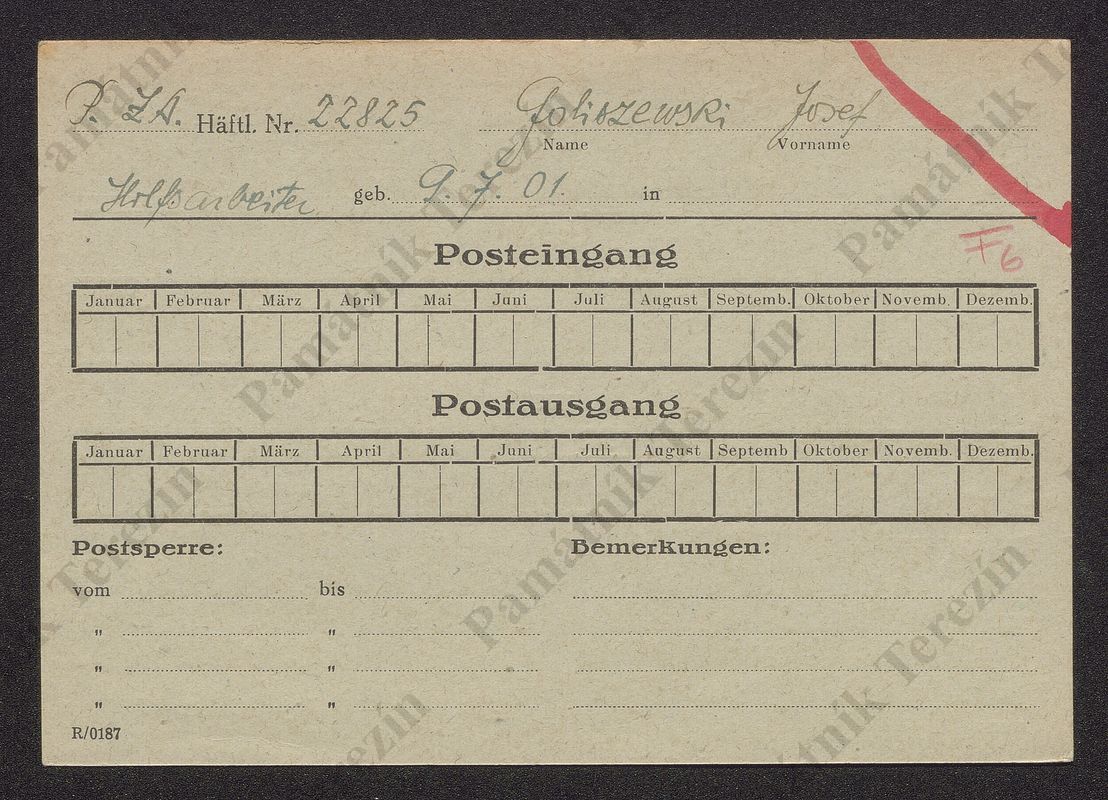 P. ZA. Häftl. Nr. 22825 Goliszewski Josef
Name Vorname
Hilfsarbeiter geb. 9. 7. 01. in
F6
Posteingang
Januar Februar März April Mai Juni Juli August Septemb. Oktober Novemb. Dezemb.
Postausgang
Januar Februar März April Mai Juni Juli August Septemb Oktober Novemb. Dezemb.
Postsperre: Bemerkungen:
vom bis
" "
" "
" "
R/0187
Památník Terezín